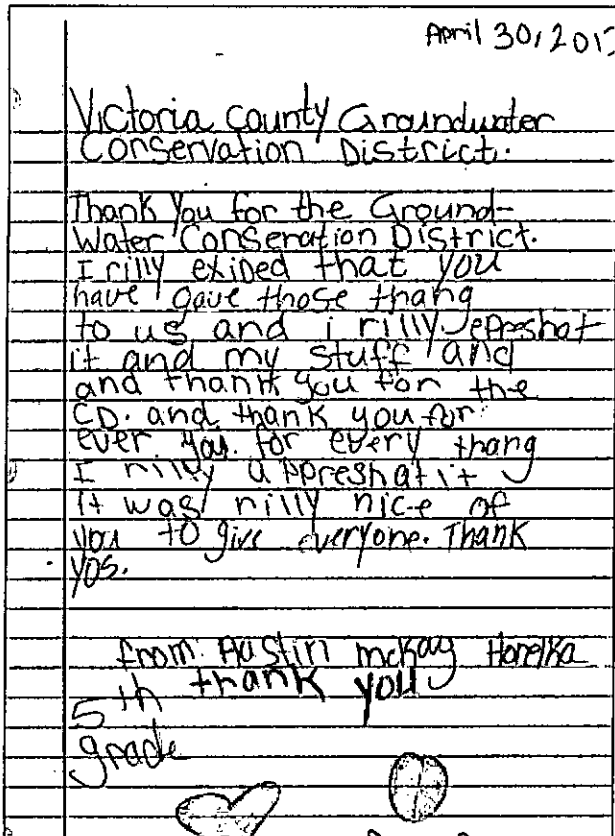 April 30, 201
Victoria County Groundwater
Conservation District.
Thank you for the Ground-
Water Conseration District.
I rilly exided that you
have gave those thang
to us and i rilly epreshat
it and my stuff and
and thank you for the
CD. and thank you for
ever you for every thang
I rilly appreshat it
it was rilly nice of
you to give everyone. Thank
yos.
from: Austin mckay
thank you
5th
grade